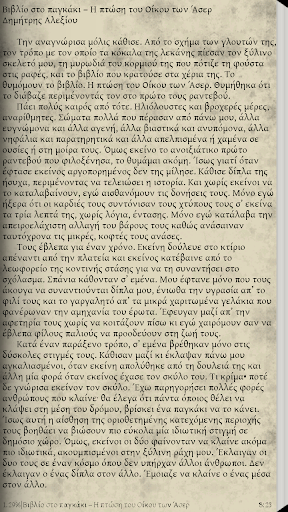 Βιβλίο στο παγκάκι – Η πτώση του Οίκου των Άσερ
Δημήτρης Αλεξίου
Την αναγνώρισα μόλις κάθισε. Από το σχήμα των γλουτών της,
τον τρόπο με τον οποίο τα κόκαλα της λεκάνης πίεσαν τον ξύλινο
σκελετό μου, τη μυρωδιά του κορμιού της που πότιζε τη φούστα
στις ραφές, και το βιβλίο που κρατούσε στα χέρια της. Το
θυμόμουν το βιβλίο. Η πτώση του Οίκου των Άσερ. Θυμήθηκα ότι
το διάβαζε περιμένοντάς τον στο πρώτο τους ραντεβού.
Πάει πολύς καιρός από τότε. Ηλιόλουστες και βροχερές μέρες,
αναρίθμητες. Σώματα πολλά που πέρασαν από πάνω μου, άλλα
ευγνώμονα και άλλα αγενή, άλλα βιαστικά και ανυπόμονα, άλλα
νηφάλια και παρατηρητικά και άλλα απελπισμένα ή χαμένα σε
ουσίες ή στη μοίρα τους. Όμως εκείνο το ανοιξιάτικο πρώτο
ραντεβού που φιλοξένησα, το θυμάμαι ακόμη. Ίσως γιατί όταν
έφτασε εκείνος αργοπορημένος δεν της μίλησε. Κάθισε δίπλα της
ήσυχα, περιμένοντας να τελειώσει η ιστορία. Και χωρίς εκείνοι να
το καταλαβαίνουν, εγώ αισθανόμουν τις δονήσεις τους. Μόνο εγώ
ήξερα ότι οι καρδιές τους συντόνισαν τους χτύπους τους σ' εκείνα
τα τρία λεπτά της, χωρίς λόγια, έντασης. Μόνο εγώ κατάλαβα την
απειροελάχιστη αλλαγή του βάρους τους καθώς ανάσαιναν
ταυτόχρονα τις μικρές, κοφτές τους ανάσες.
Τους έβλεπα για έναν χρόνο. Εκείνη δούλευε στο κτίριο
απέναντι από την πλατεία και εκείνος κατέβαινε από το
λεωφορείο της κοντινής στάσης για να τη συναντήσει στο
σχόλασμα. Σπάνια κάθονταν σ' εμένα. Μου έφτανε μόνο που τους
άκουγα να συναντιούνται δίπλα μου, ένιωθα την υγρασία απ' το
φιλί τους και το γαργαλητό απ' τα μικρά χαριτωμένα γελάκια που
φανέρωναν την αμηχανία του έρωτα. Έφευγαν μαζί απ' την
αφετηρία τους χωρίς να κοιτάξουν πίσω κι εγώ χαιρόμουν σαν να
έβλεπα φίλους παλιούς να προοδεύουν στη ζωή τους.
Κατά έναν παράξενο τρόπο, σ' εμένα βρέθηκαν μόνο στις
δύσκολες στιγμές τους. Κάθισαν μαζί κι έκλαψαν πάνω μου
αγκαλιασμένοι, όταν εκείνη απολύθηκε από τη δουλειά της και
άλλη μία φορά όταν εκείνος έχασε τον σκύλο του. Τι κρίμα• ποτέ
δε γνώρισα εκείνον τον σκύλο. Έχω παρηγορήσει πολλές φορές
ανθρώπους που κλαίνε· θα έλεγα ότι πάντα όποιος θέλει να
κλάψει στη μέση του δρόμου, βρίσκει ένα παγκάκι να το κάνει.
Ίσως αυτή η αίσθηση της οριοθετημένης κατεχόμενης περιοχής
τους βοηθάει να βιώσουν πιο εύκολα μία ιδιωτική στιγμή σε
δημόσιο χώρο. Όμως, εκείνοι οι δύο φαίνονταν να κλαίνε ακόμα
πιο ιδιωτικά, ακουμπισμένοι στην ξύλινη ράχη μου. Έκλαιγαν οι
δυο τους σε έναν κόσμο όπου δεν υπήρχαν άλλοι άνθρωποι. Δεν
έκλαιγαν ο ένας δίπλα στον άλλο. Έμοιαζε να κλαίνε ο ένας μέσα
στον άλλο.
Βιβλίο στο παγκάκι – Η πτώση του Οίκου των Άσερ